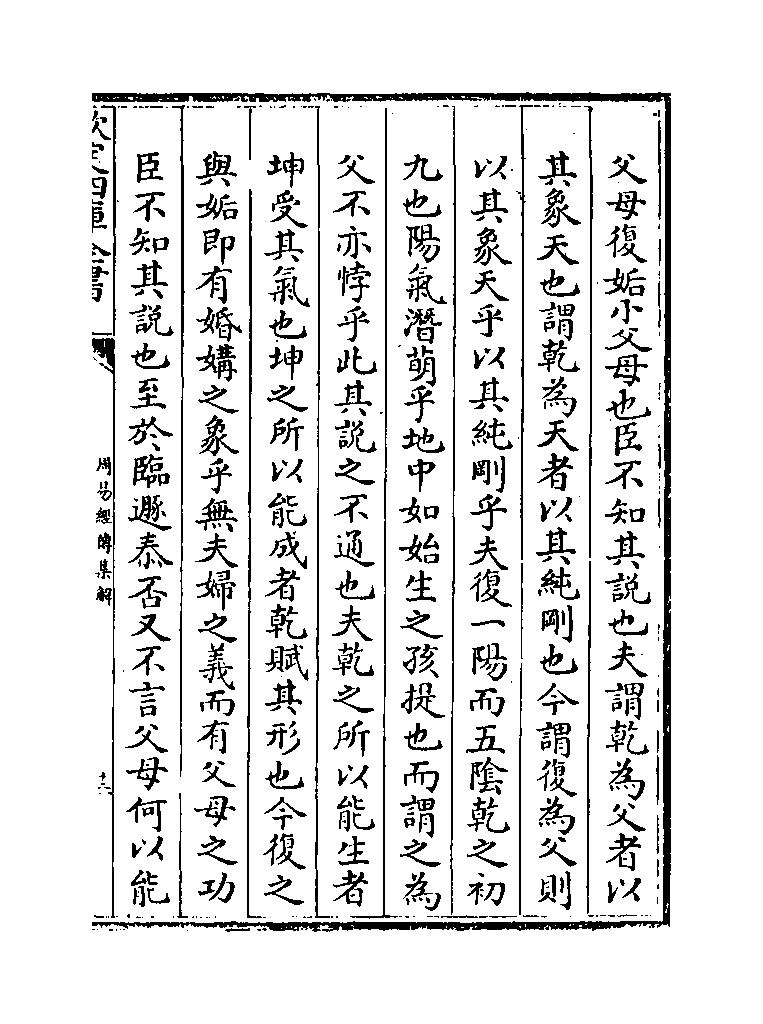 父母復姤小父母也臣不知其説也夫謂乾為父者以
其象天也謂乾為天者以其純剛也今謂復為父則
以其象天乎以其純剛乎夫復一陽而五陰乾之初
九也陽氣潛萌乎地中如始生之孩提也而謂之為
父不亦悖乎此其説之不通也夫乾之所以能生者
坤受其氣也坤之所以能成者乾賦其形也今復之
與姤即有婚媾之象乎無夫婦之義而有父母之功
臣不知其説也至於臨遯泰否又不言父母何以能
欽定四庫全書
周易經傳集解
十三